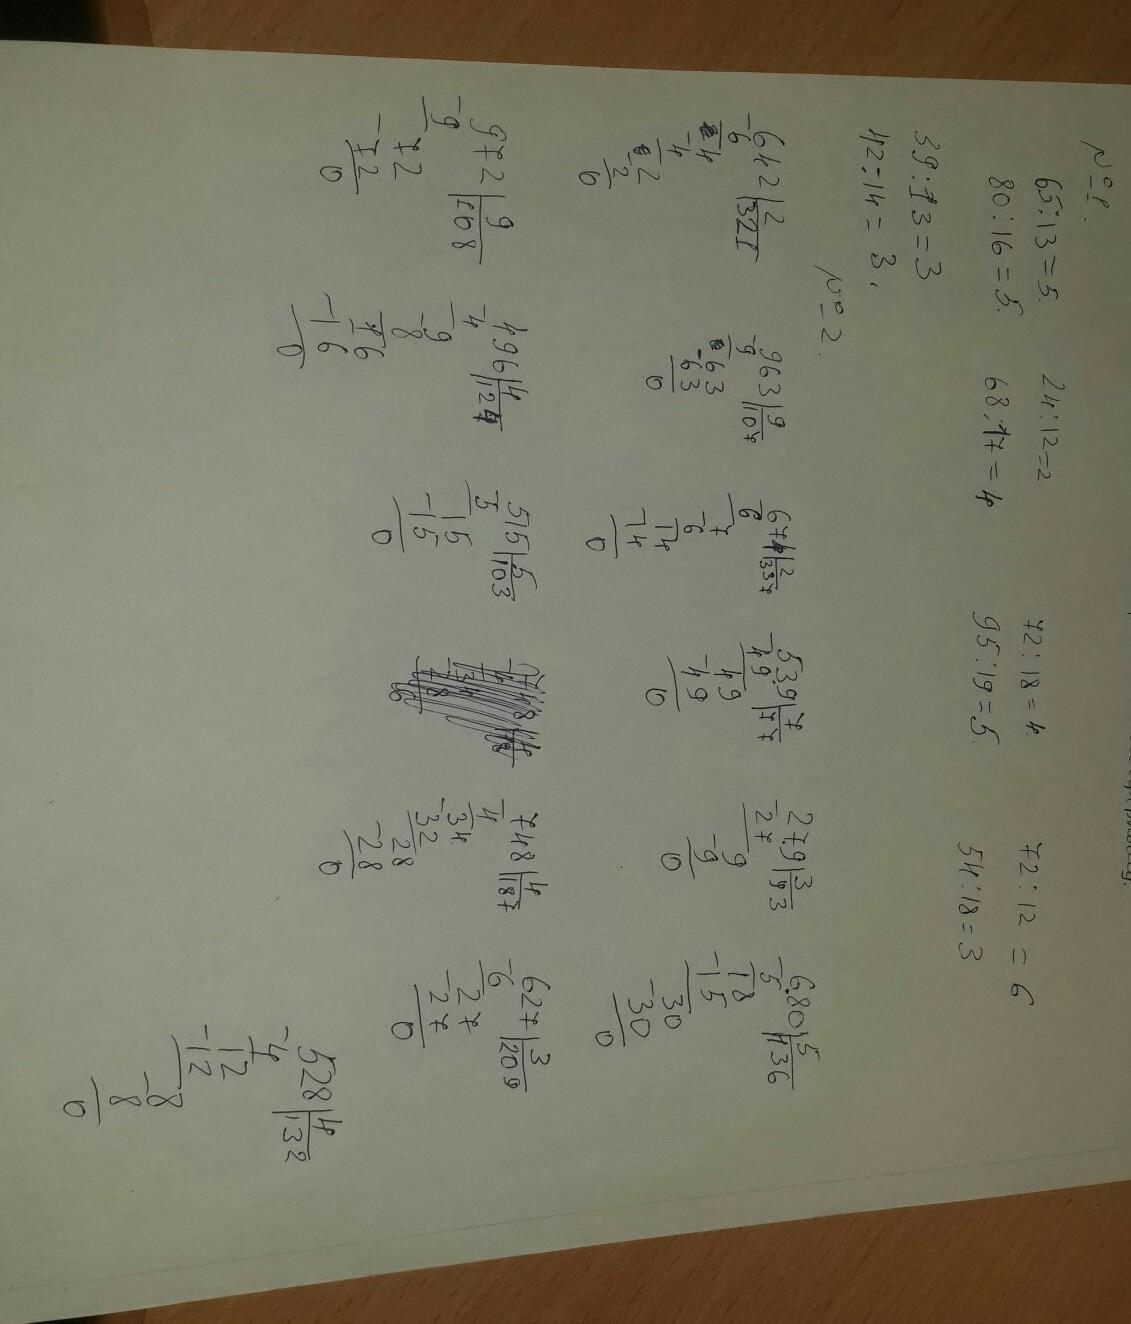 №1.
65:13=5. 24:12=2 72:18=4. 72:12=6
80:16=5. 68:17=4 95:19=5. 54:18=3
39:13=3
42:14=3.
№2.
-642|2 963|9 674|2 539|7 279|3 680|5
6 |321 -9 |107 -6 |337 -49 |77 -27 |93 -5 |136
4 63 7 49 9 18
-4 -63 -6 -49 -9 -15
2 0 14 0 0 30
-2 -14 -30
0 0 0
972|9 496|4 515|5 748|4 627|3
-9 |108 -4 |124 -5 |103 -4 |187 -6 |209
72 9 15 34 27
-72 -8 -15 -32 -27
0 16 0 28 0
-16 -28
0 0
528|4
-4 |132
12
-12
8
-8
0